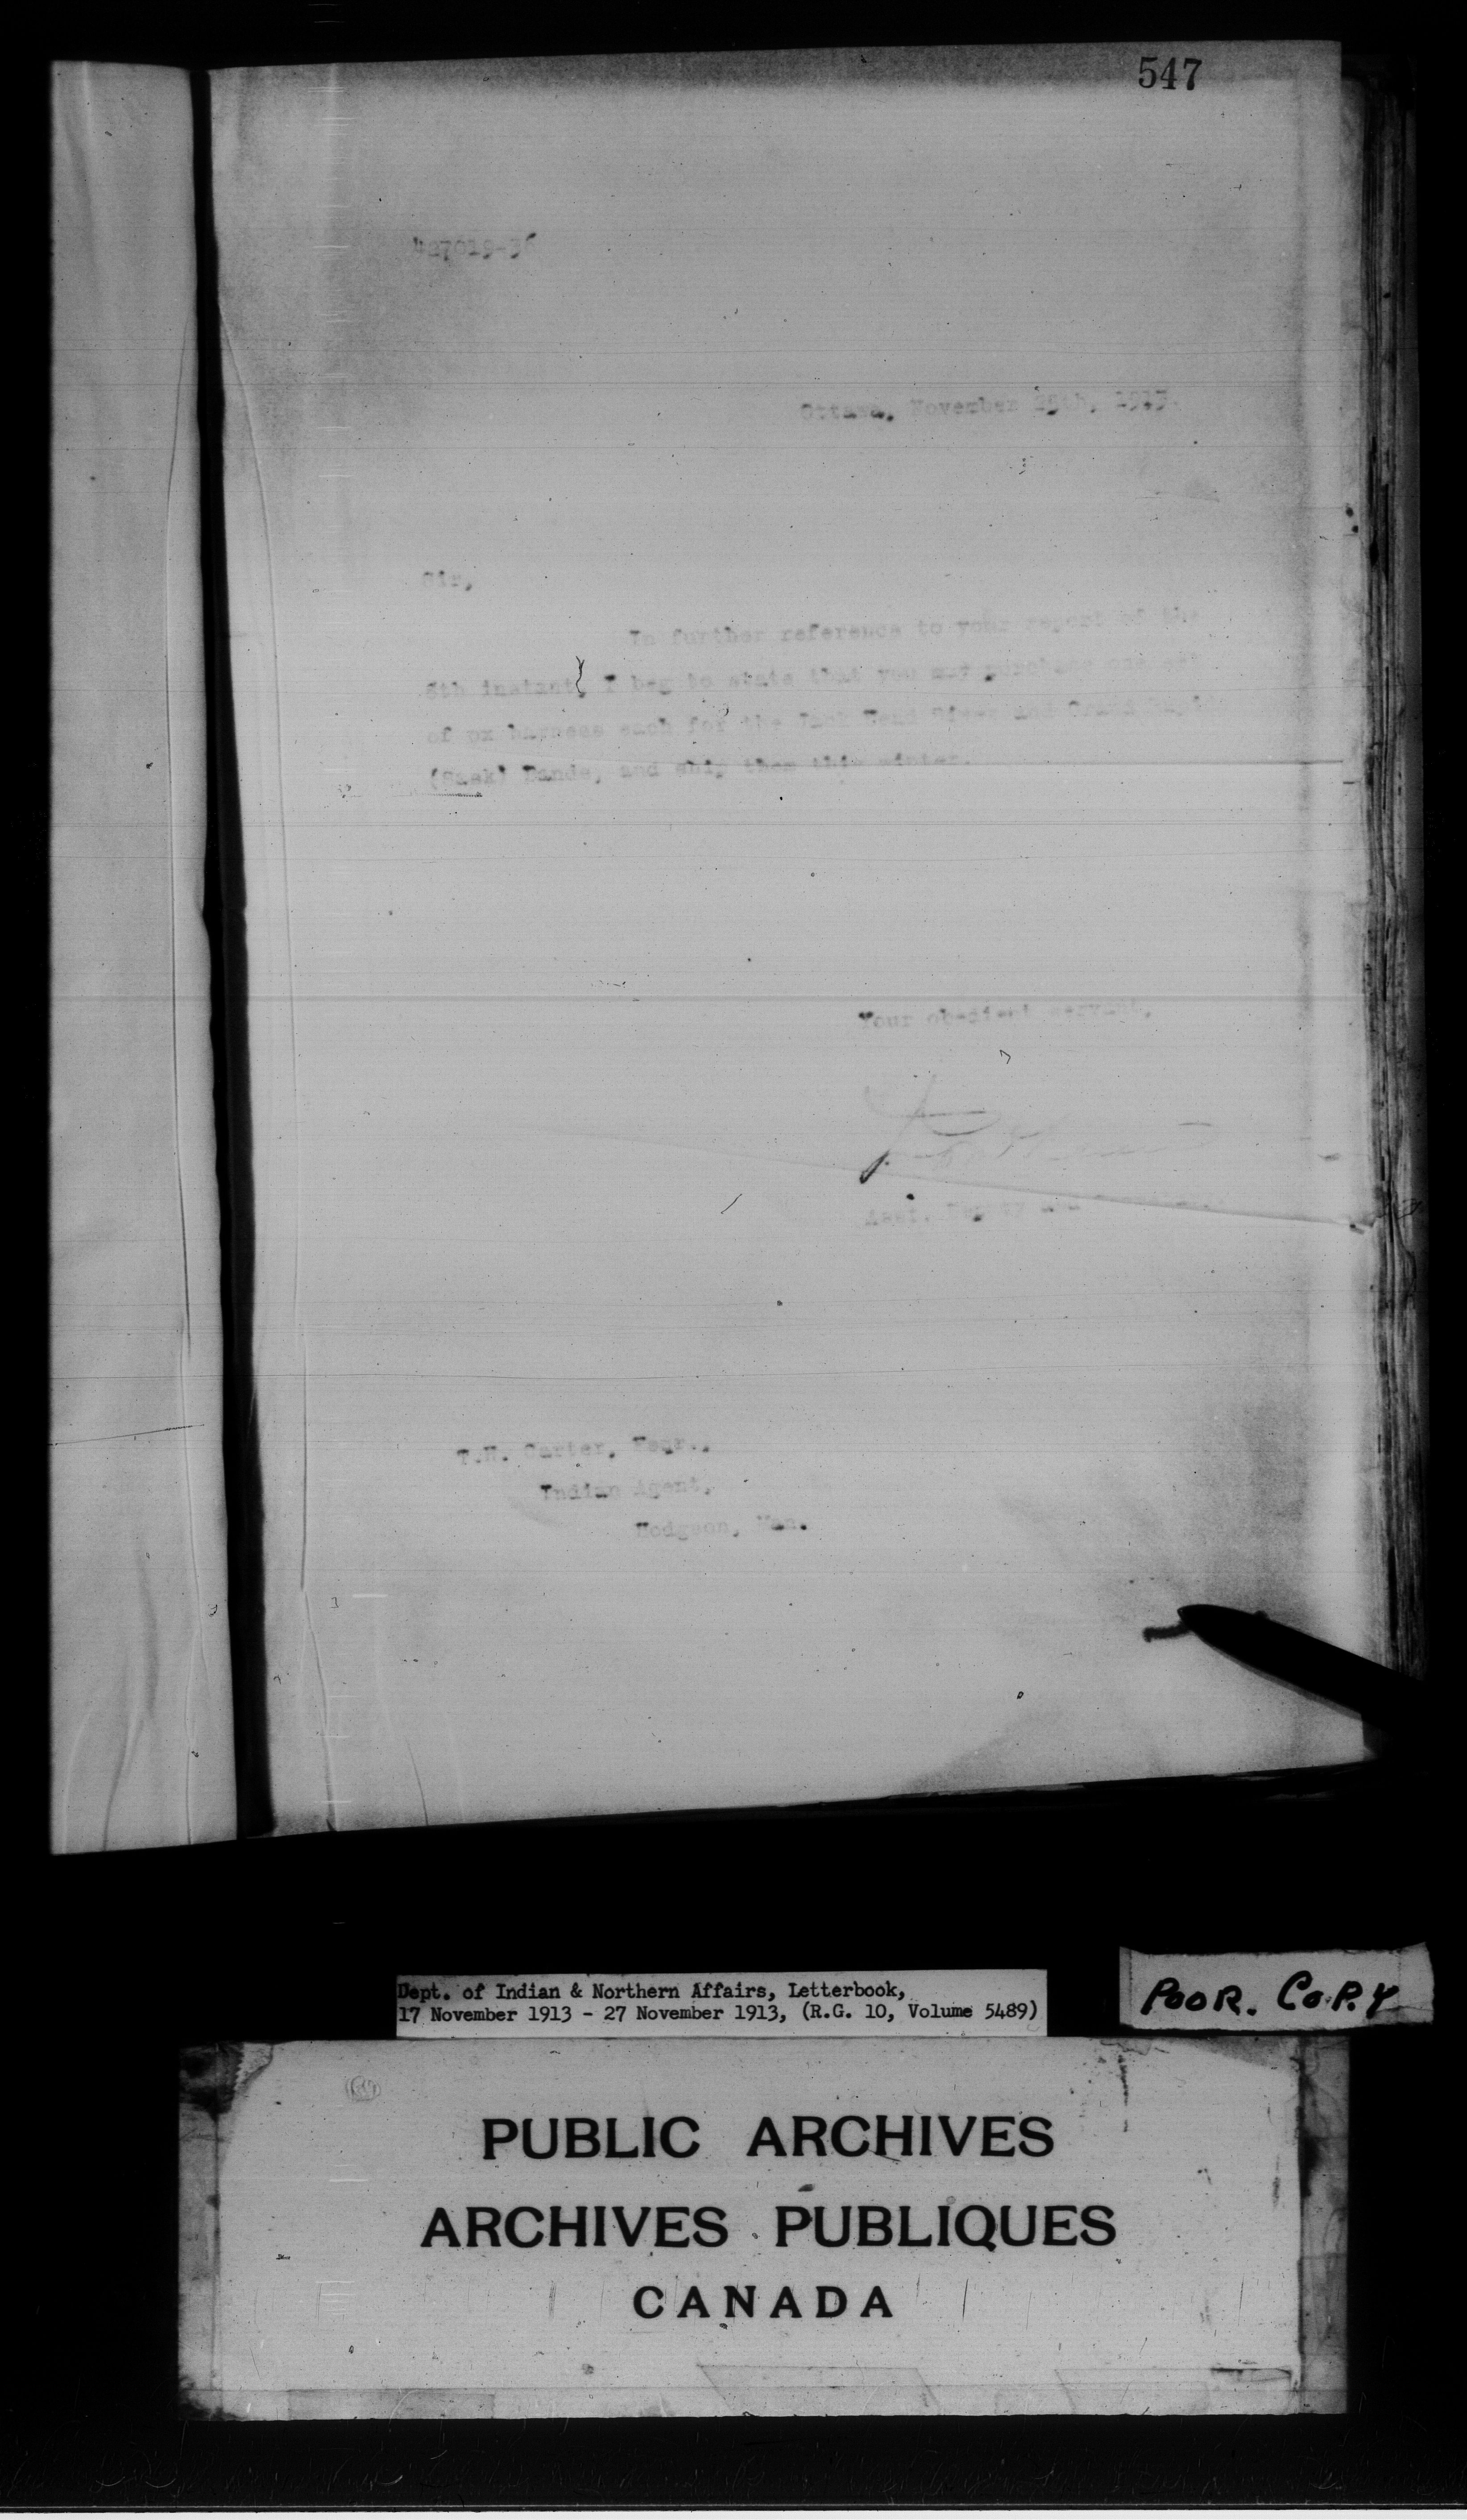 547
427019-36
Ottawa, November 25th, 1913.
Sir,
In further reference to your report of the
8th instant, I beg to state that you may purchase one set
of ox harness each for the Jack Head River and Grand
(Sask) Bands, and ship them this winter.
Your obedient servant,
Asst. Deputy and
T.H. Carter, Esqr.,
Indian Agent,
Hodgson, Man.
Dept. of Indian & Northern Affairs, Letterbook,
17 November 1913 - 27 November 1913, (R.G. 10, Volume 5489)
POOR. COPY
PUBLIC ARCHIVES
ARCHIVES PUBLIQUES
CANADA